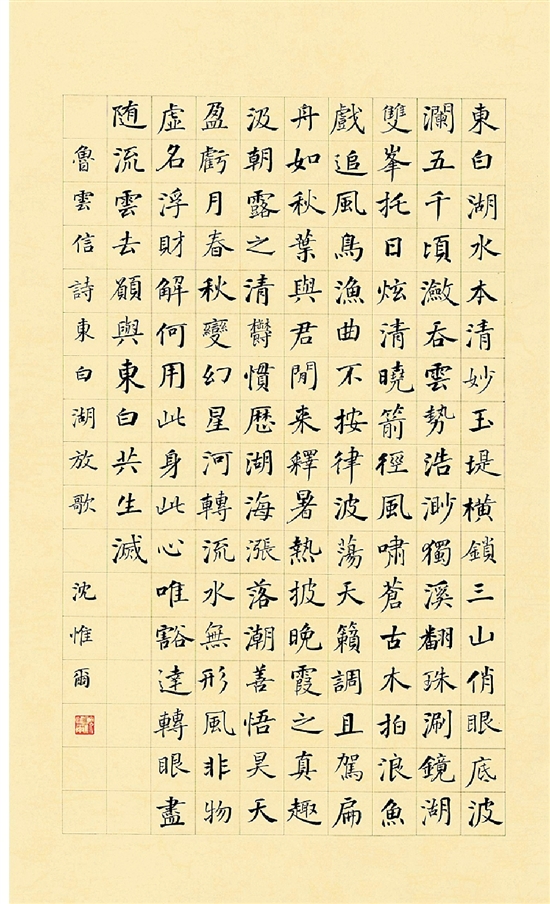 東白湖水本清妙玉堤橫鎖三山俏眼底波
瀾五千頃瀲吞雲勢浩渺獨溪翻珠涮鏡湖
雙峯托日炫清曉箭徑風嘯蒼古木拍浪魚
戲追風鳥漁曲不按律波蕩天籟調且駕扁
舟如秋葉與君閒来釋暑熱披晚霞之真趣
汲朝露之清欝慣歷湖海漲落潮善悟昊天
盈虧月春秋變幻星河轉流水無形風非物
虛名浮財解何用此身此心唯豁達轉眼盡
随流雲去願與東白共生滅
魯雲信詩東白湖放歌 沈惟爾